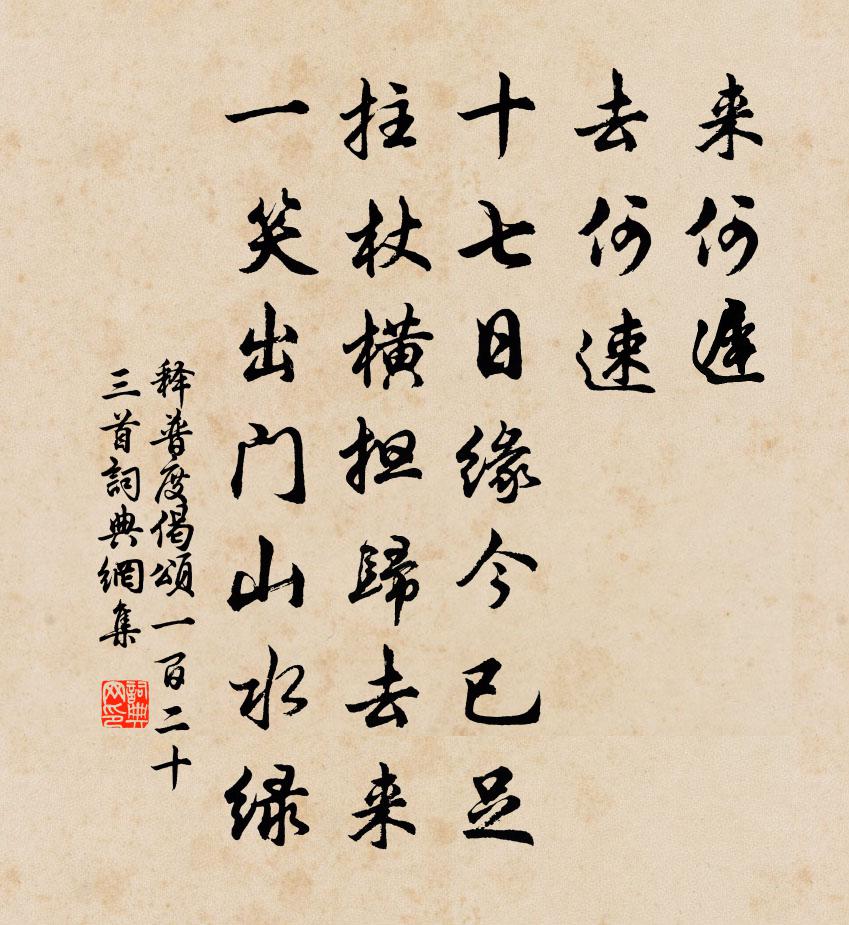 来何遲
去何速
十七日緣今已足
拄杖橫担歸去来
一笑出门山水绿
释普度偈頌一百二十
三首詞典網集
詞典
网印